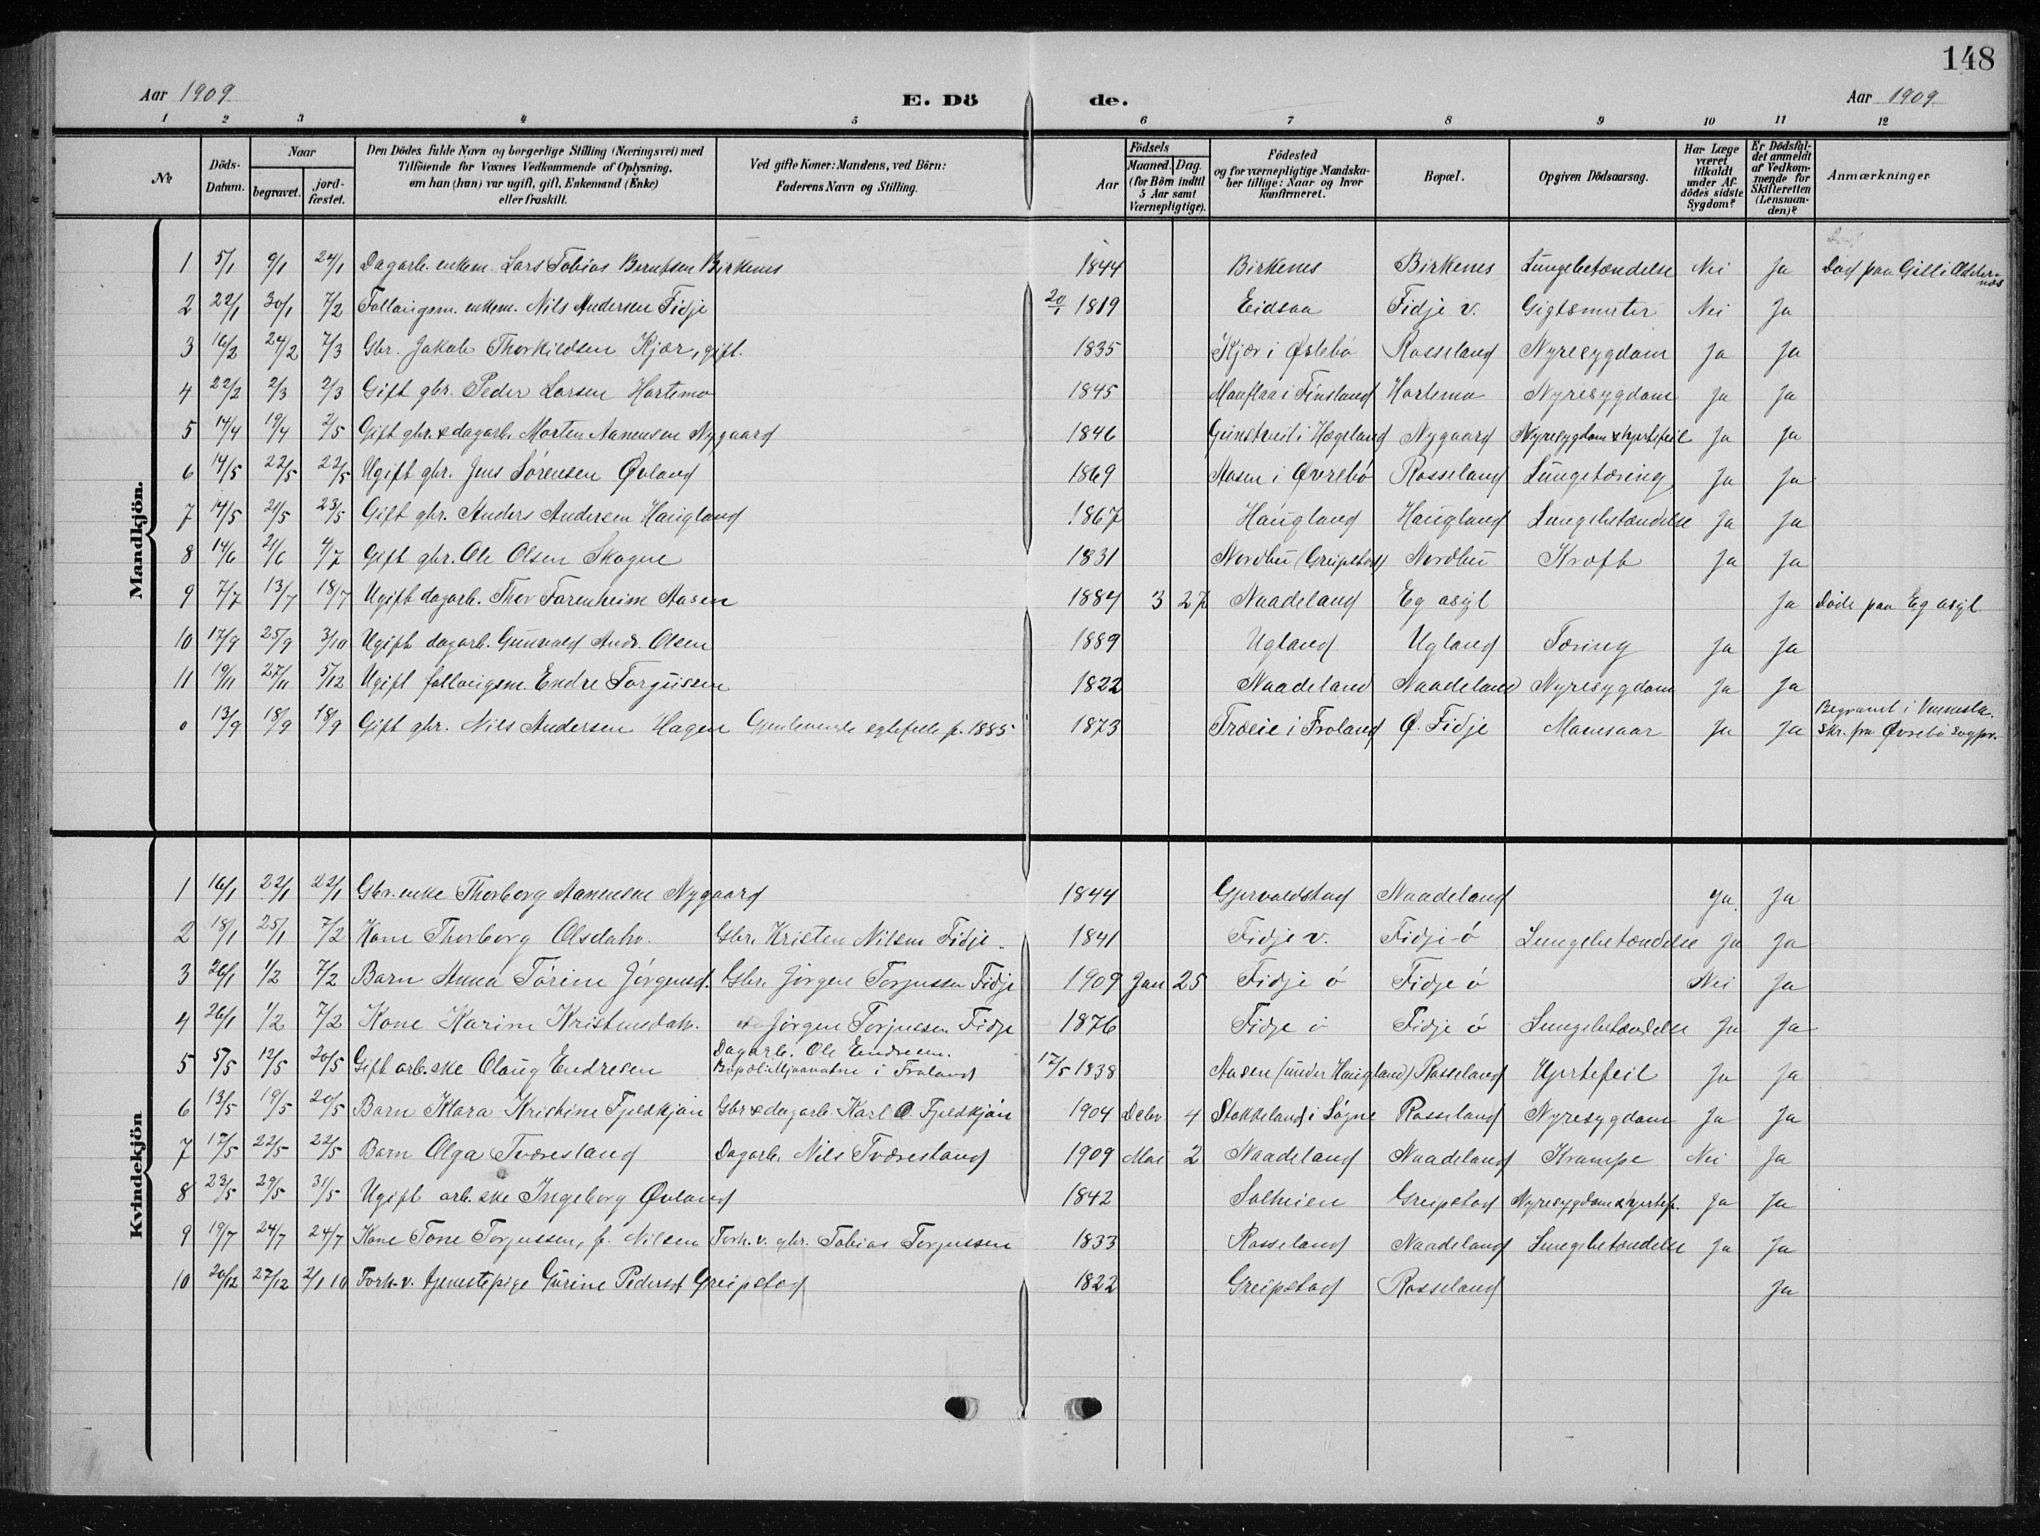 148
Aar 1909 E. Dö de. Aar 1909
1 2 3 4 5 6 7 8 9 10 11 12
№ Döds-Datum. Naar begravet. jord-fæstet. Den Dödes fulde Navn og borgerlige Stilling (Næringsvei) med Tilföiende for Voxnes Vedkommende af Oplysning, om han (hun) var ugift, gift, Enkemand (Enke) eller fraskilt. Ved gifte Koner: Mandens, ved Börn: Faderens Navn og Stilling. Födsels Aar Maaned. Dag. (for Börn indtil 5 Aar samt Værnepligtige). Födested og for værnepligtige Mandskaber tillige: Naar og hvor konfirmeret. Bopæl. Opgiven Dödsaarsag. Har Læge været tilkaldt under Afdödes sidste Sygdom? Er Dödsfaldet anmeldt af Vedkommende for Skifteretten (Lensmanden)? Anmærkninger
Mandkjön.
1 5/1 9/1 24/1 Dagarb. enkem. Lars Tobias Berntsen Birkenes 1844 Birkenes Birkenes Lungebetændelse Nei Ja Død paa
2 22/1 30/1 7/2 Follaugsm. enkem. Nils Andersen Fidje 20/1 1819 Eidsaa Fidje v. Gigtsmerter Nei Ja
3 16/2 24/2 7/3 Gbr. Jakob Thorkildsen Kjær, gift. 1835 Kjær i Øslebø Rosseland Nyresygdom Ja Ja
4 22/2 2/3 2/3 Gift gbr. Peder Larsen Hortemo 1845 Mouflaa i Finsland Hortemo Nyresygdom Ja Ja
5 14/4 19/4 2/5 Gift gbr. & dagarb. Morten Aanensen Nygaard 1846 i Hægeland Nygaard Nyresygdom & hjertefeil Ja Ja
6 14/5 22/5 22/5 Ugift gbr. Jens Sørensen Øvland 1869 Aasen i Øvrebø Rosseland Lungetæring Ja Ja
7 14/5 21/5 23/5 Gift gbr. Anders Andersen Haugland 1867 Haugland Haugland Lungebetændelse Ja Ja
8 14/6 21/6 4/7 Gift gbr. Ole Olsen Skogen 1831 Nordbu (Greipstad) Nordbu Kræft Ja Ja
9 7/7 13/7 18/7 Ugift dagarb. Thor Farenheim Aasen 1884 3 27 Naadeland Eg asyl Ja Døde paa Eg asyl
10 17/9 25/9 3/10 Ugift dagarb. Gunvald Andr. Olsen 1889 Ugland Ugland Tæring Ja Ja
11 19/11 27/11 5/12 Ugift follaugsm. Endre Torgussen 1822 Naadeland Naadeland Nyresygdom Ja Ja
0 13/9 18/9 18/9 Gift gbr. Nils Andersen Hagen Gjenlevende egtefelle f. 1885 1873 Træeie i Froland Ø. Fidje Mavesaar Ja Ja Begravet i Vennesla. Skr. fra Øvrebø sogpr.
Kvindekjön
1 16/1 22/1 22/1 Gbr. enke Thorborg Aanensen Nygaard 1844 Gjervoldstad Naadeland Ja. Ja
2 18/1 25/1 7/2 Kone Thorborg Olsdatr. Gbr. Kristen Nilsen Fidje. 1841 Fidje v. Fidje ø Lungebetændelse Ja Ja
3 26/1 1/2 7/2 Barn Anna Torine Jørgensd. Gbr. Jørgen Torjussen Fidje 1909 Jan 25 Fidje ø Fidje ø Nei Ja
4 26/1 1/2 7/2 Kone Karine Kristensdatr. do Jørgen Torjussen Fidje 1876 Fidje ø Fidje ø Lungebetændelse Ja Ja
5 5/5 12/5 20/5 Gift arb.ske Olaug Endresen Dagarb. Ole Endresen. Bopæl: i Froland 17/5 1838 Aasen (under Haugland) Rosseland Hjertefeil Ja Ja
6 13/5 19/5 20/5 Barn Klara Kristine Fjeldkjøn Gbr & dagarb. Karl O. Fjeldkjøn 1904 Debr 4 Stokkeland i Søgne Rosseland Nyresygdom Ja Ja
7 17/5 22/5 22/5 Barn Olga Tværesland Dagarb. Nils Tværesland 1909 Mai 2 Naadeland Naadeland Krampe Nei Ja
8 23/5 29/5 31/5 Ugift arb.ske Ingeborg Øvland 1842 Solheien Greipstad Nyresygdom & hjertef. Ja Ja
9 19/7 24/7 24/7 Kone Tone Torjussen, f. Nilsen Forh. v. gbr. Tobias Torjussen 1833 Rosseland Naadeland Lungebetændelse Ja Ja
10 20/12 27/12 2/1 10 Forh. v. tjenestepige Gurine Pedersdt Greipstad 1822 Greipstad Rosseland Ja